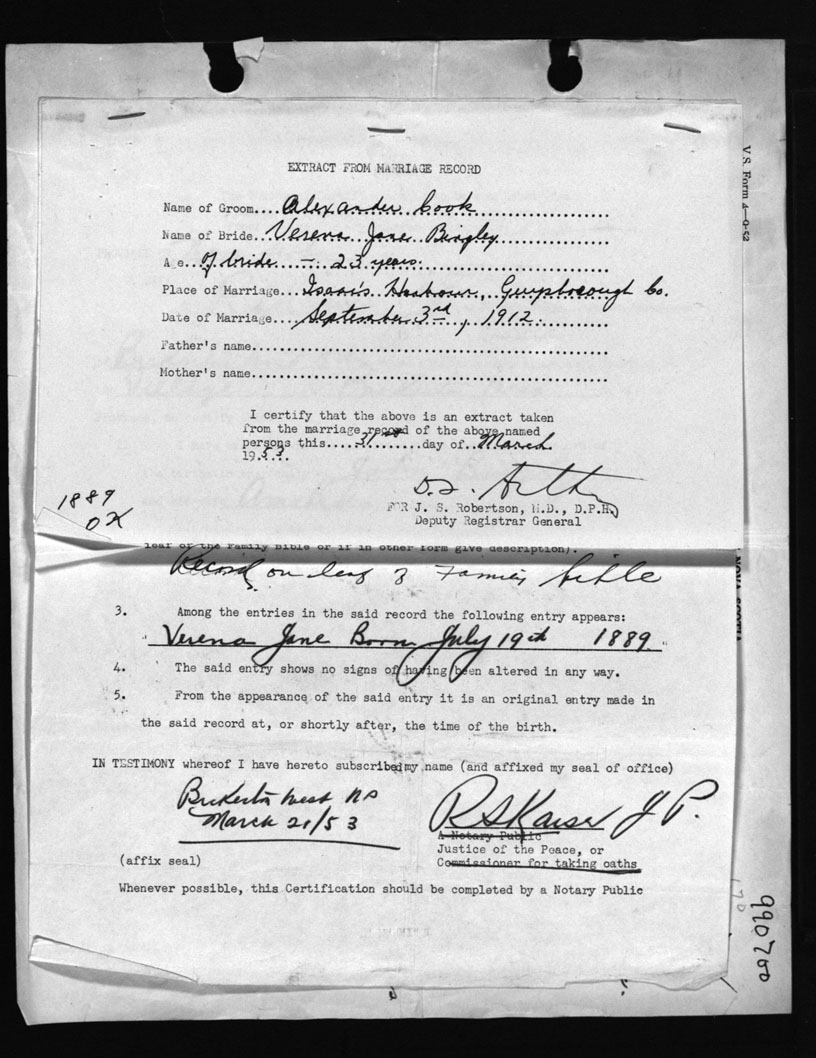 EXTRACT FROM MARRIAGE RECORD
Name of Groom....Alexander Cook
Name of Bride...Verena Jane Bingley
Age..of bride - 23 years.
Place of Marriage...Isaac's Harbour, Guysborough Co.
Date of Marriage....September 3rd, 1912.
Father's name
Mother's name
I certify that the above is an extract taken
from the marriage record of the above named
persons this.....31st...day of..March
1953.
FOR J. S. Robertson, M.D., D.P.H.
Deputy Registrar General
1889
OK
leaf of the Family Bible or if in other form give description).
Record on leaf of Family bible
3. Among the entries in the said record the following entry appears:
" Verena Jane Born July 19th 1889 "
4. The said entry shows no signs of having been altered in any way.
5. From the appearance of the said entry it is an original entry made in
the said record at, or shortly after, the time of the birth.
IN TESTIMONY whereof I have hereto subscribed my name (and affixed my seal of office)
Bickerton West NS
March 21/53
R S Kaiser J P.
A Notary Public
Justice of the Peace, or
Commissioner for taking oaths
(affix seal)
Whenever possible, this Certification should be completed by a Notary Public
V.S. Form
NOVA SCOTIA
990700